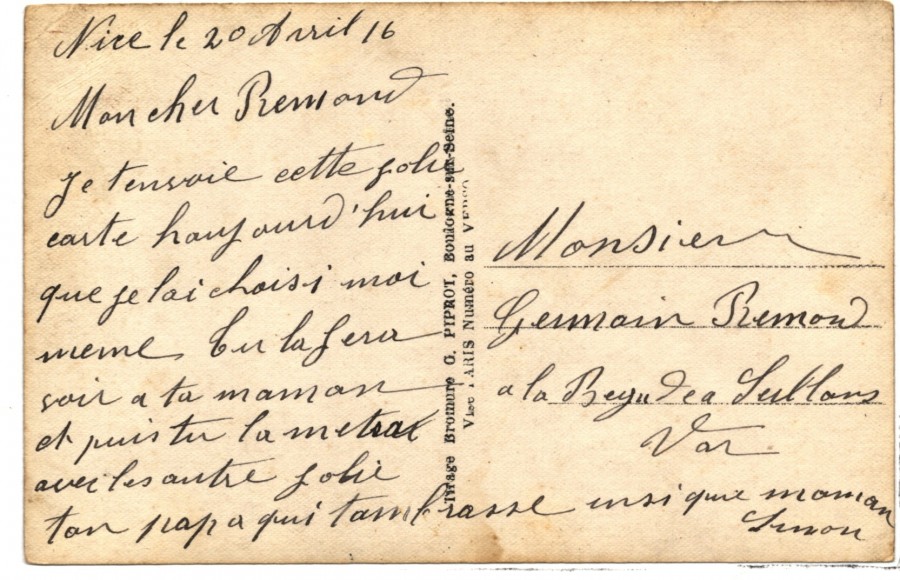 Nice le 20 Avril 16
Mon cher Remond
Je tensvoie cette jolie
carte haujourd'hui
que je lai choisi moi
meme Tu la fera
voir a ta maman
et puis tu la metra
avec les autre jolie
ton papa qui tambrasse insi que maman
Simon
Tirage Bromure G. PIPROT, Boulogne-sur-Seine.
Visé PARIS Numéro au VERSO
Monsieur
Germain Remond
a la Sullans
Var